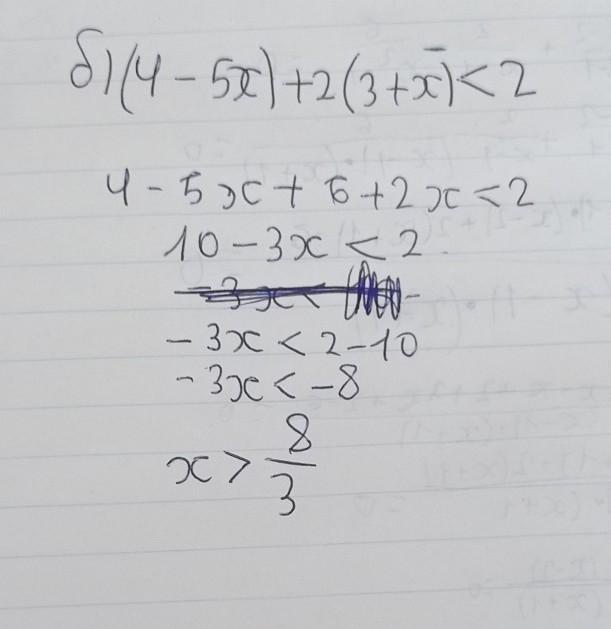 б)(4 - 5x) + 2(3 + x) < 2
4 - 5x + 6 + 2x < 2
10 - 3x < 2
- 3x < 2 - 10
- 3x < -8
x > 8/3